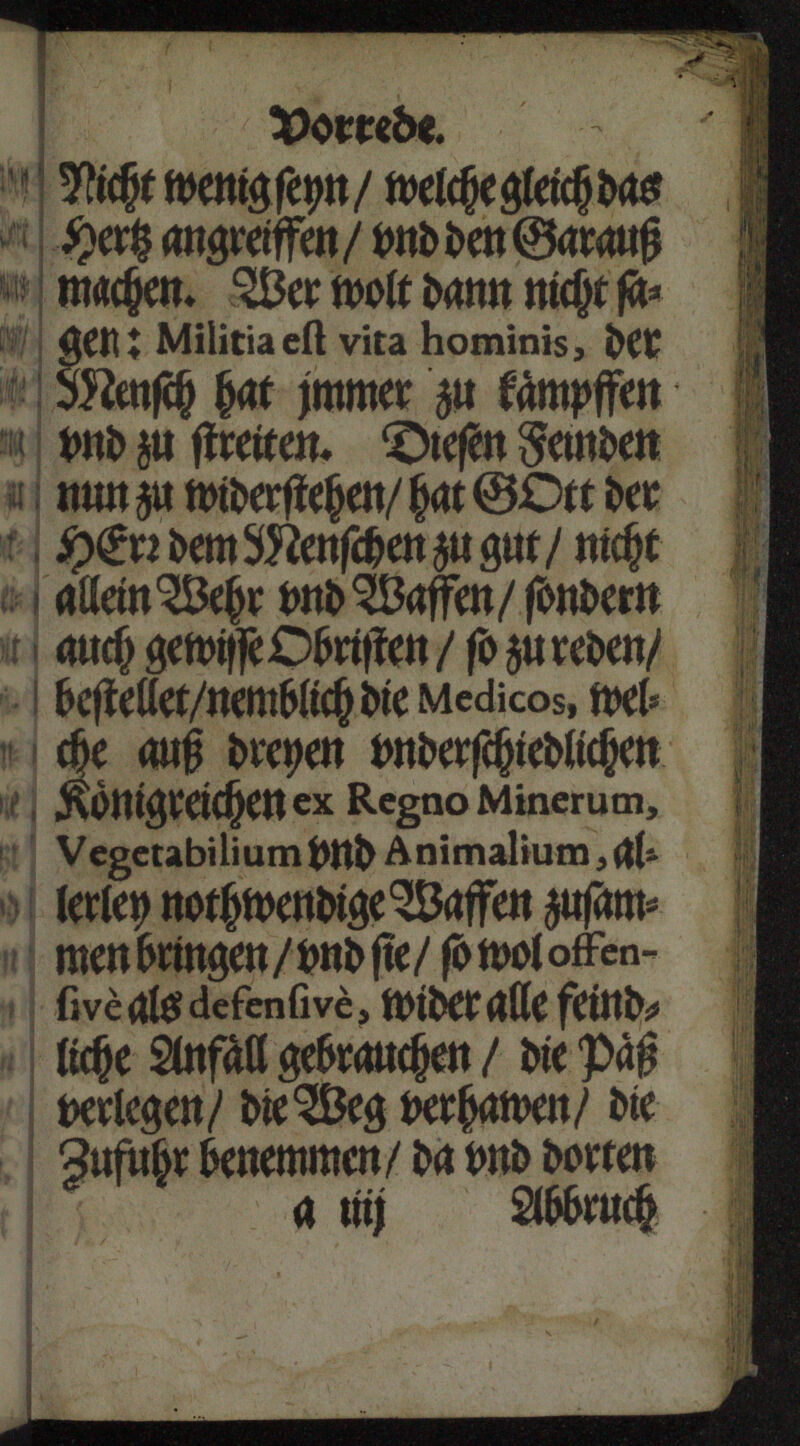 Vorrede.
Nicht wenig ſeyn / welche gleich das
Hertz angreiffen / vnd den Garauß
machen. Wer wolt dann nicht ſa⸗
gen: Militia eſt vita hominis, der
Menſch hat jmmer zu kaͤmpffen
vnd zu ſtreiten. Dieſen Feinden
nun zu widerſtehen / hat GOtt der
HErꝛ dem Menſchen zu gut / nicht
allein Wehr vnd Waffen / ſondern
auch gewiſſe Obriſten / ſo zu reden /
beſtellet / nemblich die Medicos, wel⸗
che auß dreyen vnderſchiedlichen
Koͤnigreichen ex Regno Minerum,
Vegetabilium vnd Animalium, al⸗
lerley nothwendige Waffen zuſam⸗
men bringen / vnd ſie / ſo wol offen-
ſivè als defenſivè, wider alle feind⸗
liche Anfaͤll gebrauchen / die Paͤß
verlegen / die Weg verhawen / die
Zufuhr benemmen / da vnd dorten
a iiij Abbruch